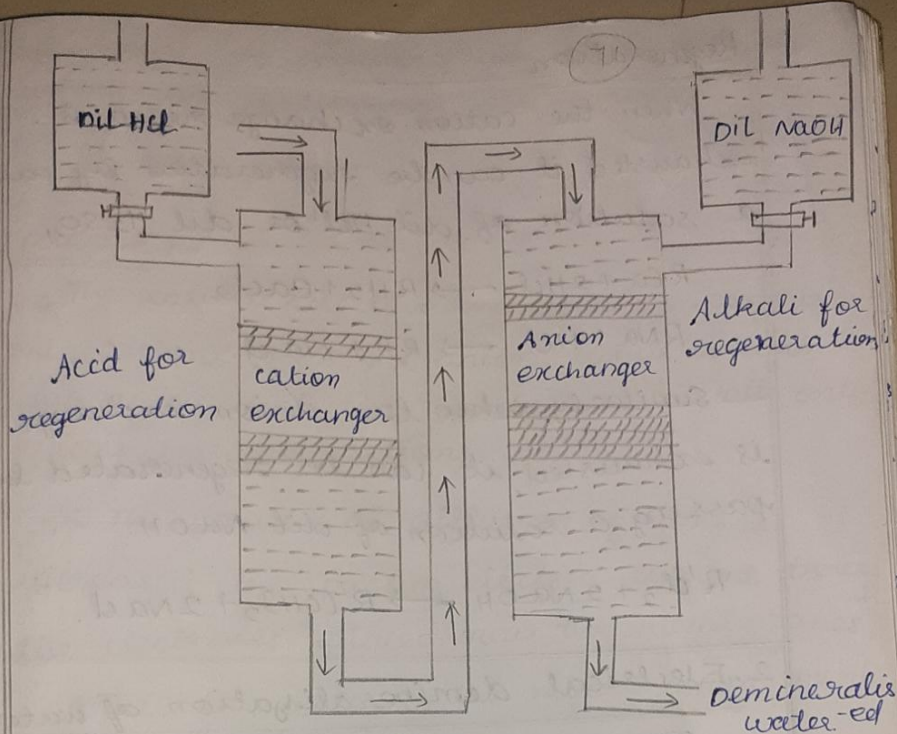 Dil HCl
Dil NaOH
Acid for
regeneration
cation
exchanger
Anion
exchanger
Alkali for
regeneration
Demineralis
water -ed